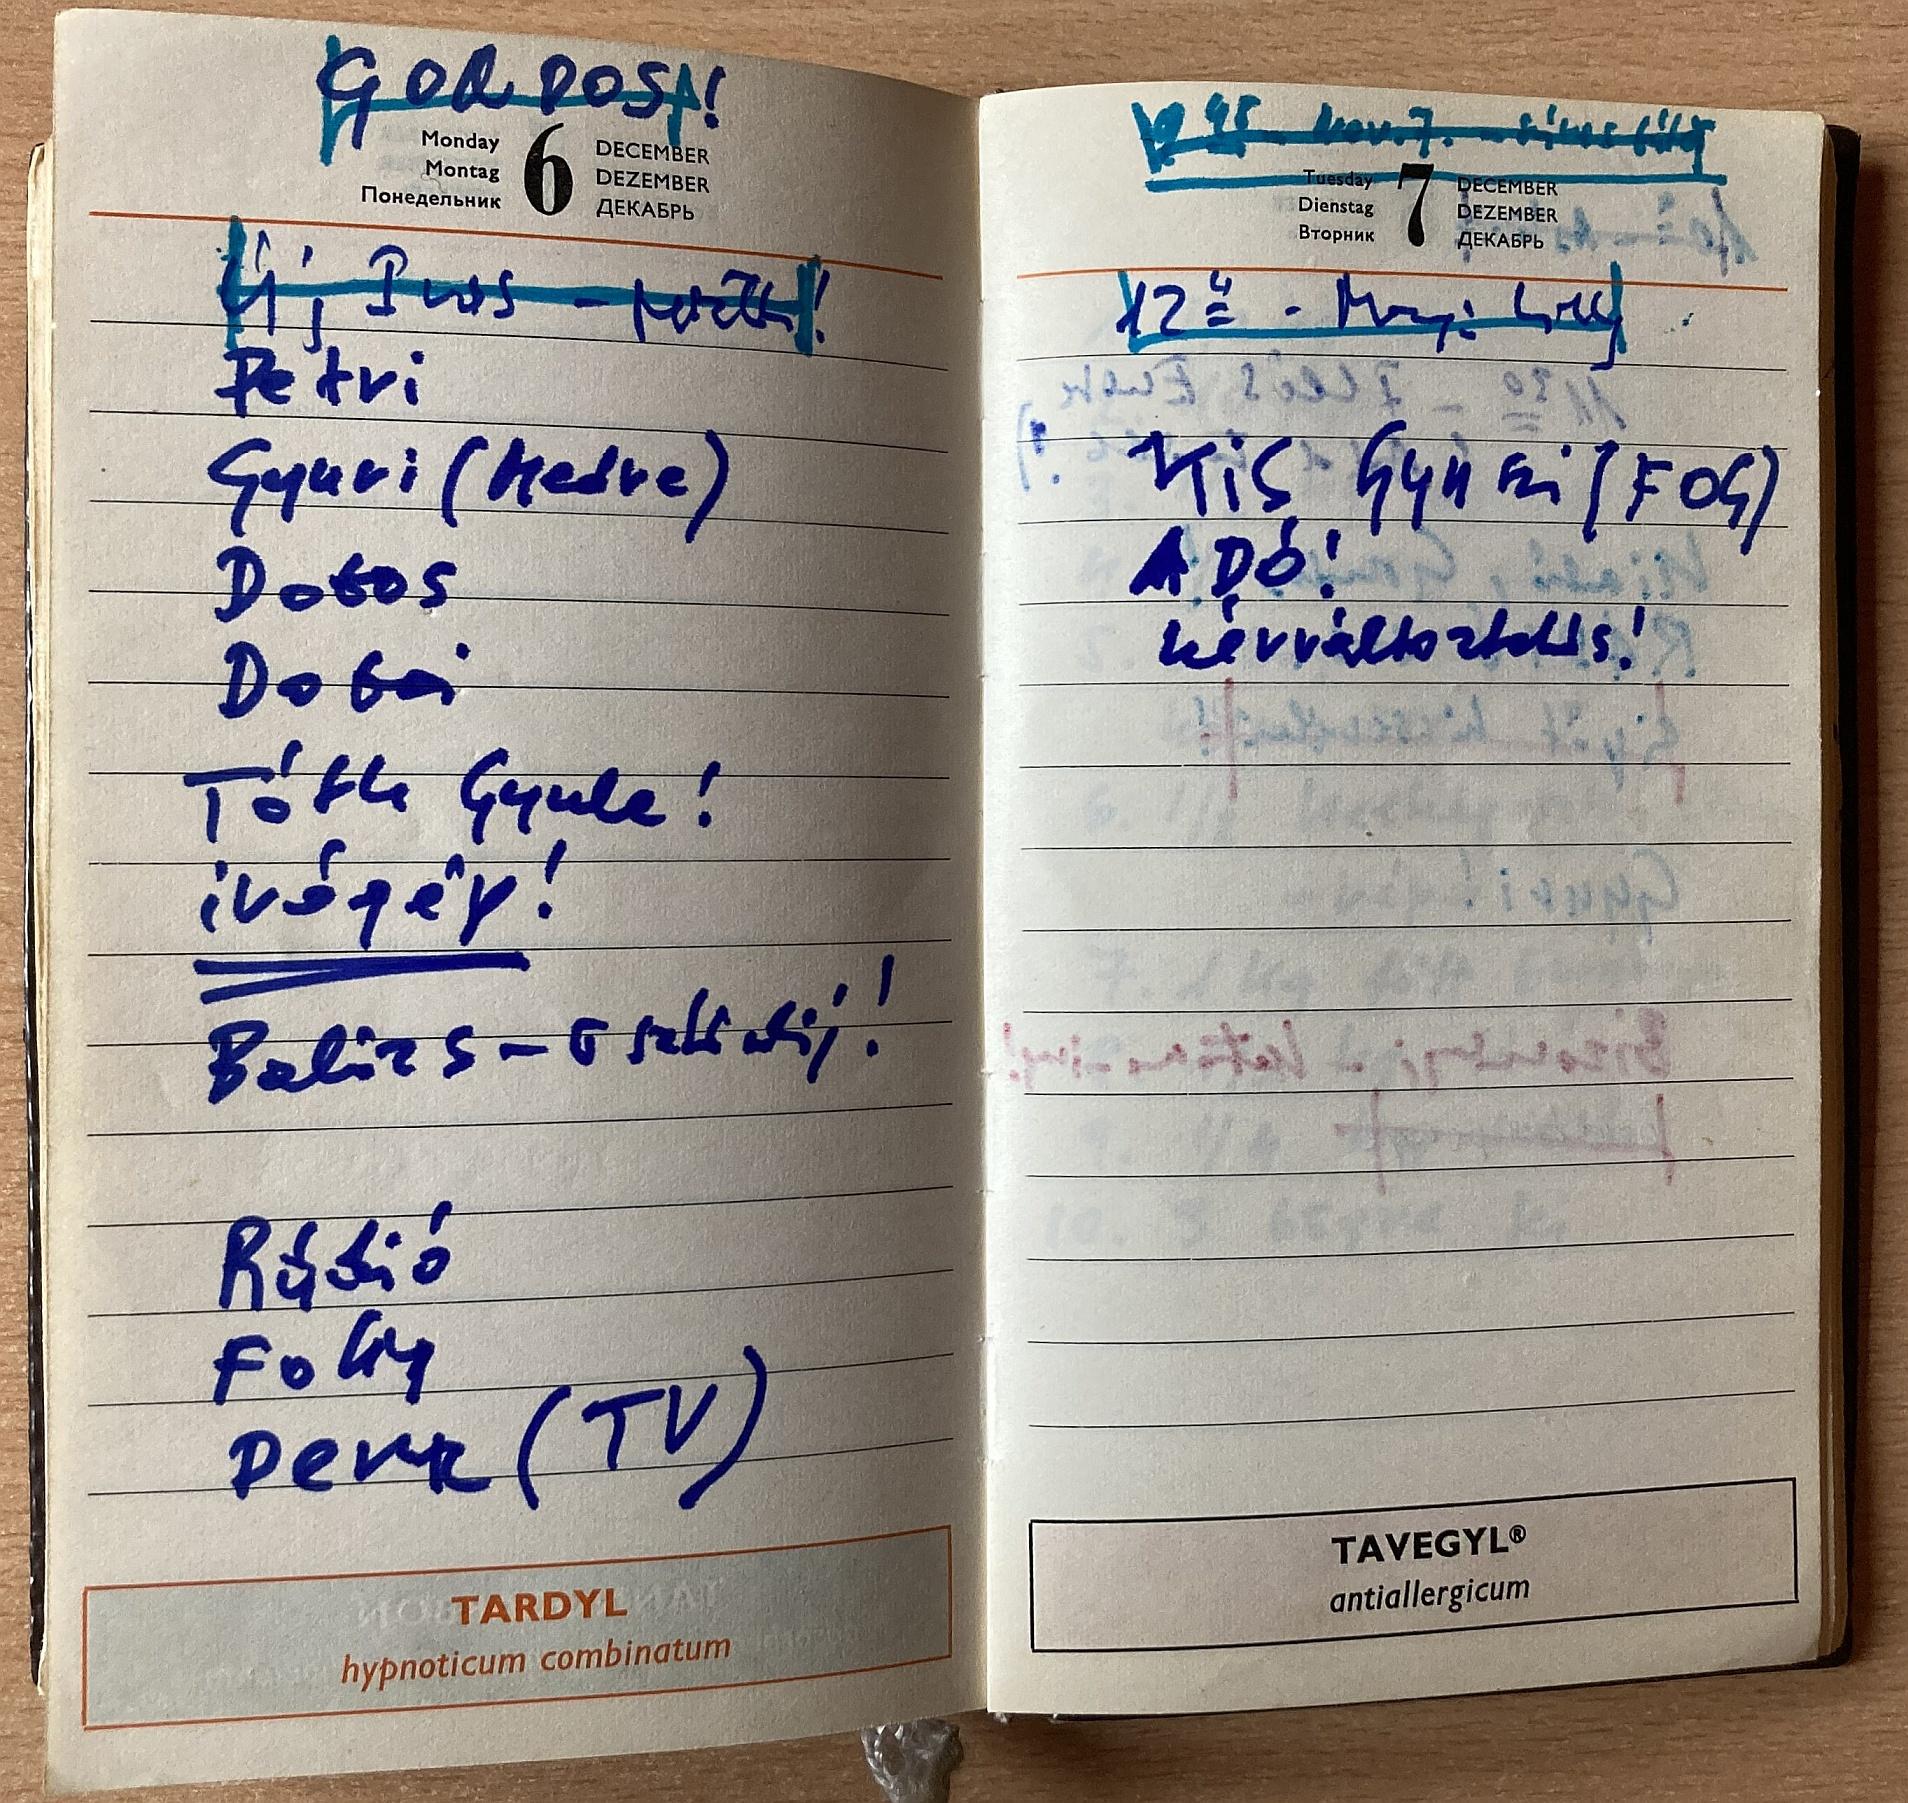 GORDOS!
Monday
Montag
Понедельник
6
DECEMBER
DEZEMBER
ДЕКАБРЬ
Új Írás -
Petri
Gyuri (Medve)
Dobos
Dobai
Tóth Gyula!
ívógép!
Balázs - ösztöndíj!
Rádió
Foky
(TV)
TARDYL
hypnoticum combinatum
Tuesday
Dienstag
Вторник
7
DECEMBER
DEZEMBER
ДЕКАБРЬ
12
Kis Gyuri (FOG)
ADÓ!
névváltoztatás!
TAVEGYL®
antiallergicum